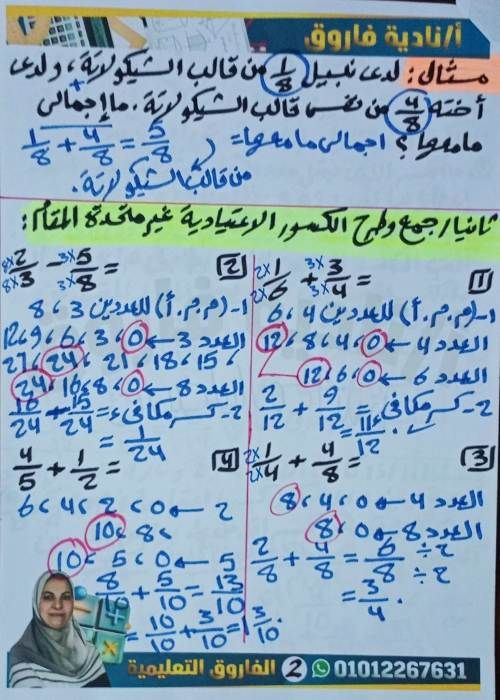 أ/نادية فاروق
مثال: لدى نبيل 1/8 من قالب الشيكولاتة، ولدى
أخته 4/8 من نفس قالب الشيكولاتة. ما إجمالى
ما معهما؟ اجمالى ما معهما = 1/8 + 4/8 = 5/8
من قالب الشيكولاتة.
ثانيا/ جمع وطرح الكسور الاعتيادية غير متحدة المقام:
1
2× 1/6 2× + 3× 3/4 3× =
1- (م.م.أ) للعددين 4، 6
العدد 4 ← 0، 4، 8، 12
العدد 6 ← 0، 6، 12
2- كسر مكافئ = 2/12 + 9/12
= 11/12.
2
8× 2/3 8× - 3× 5/8 3× =
1- (م.م.أ) للعددين 3، 8
العدد 3 ← 0، 3، 6، 9، 12
15، 18، 21، 24، 27
العدد 8 ← 0، 8، 16، 24
2- كسر مكافئ = 16/24 - 15/24
= 1/24
3
2× 1/4 2× + 4/8 =
العدد 4 ← 0، 4، 8
العدد 8 ← 0، 8
2/8 + 4/8 = 6/8 ÷2 ÷2
= 3/4.
4
4/5 + 1/2 =
2 ← 0، 2، 4، 6
8، 10
5 ← 0، 5، 10
8/10 + 5/10 = 13/10
= 10/10 + 3/10 = 1 3/10.
01012267631 2 الفاروق التعليمية